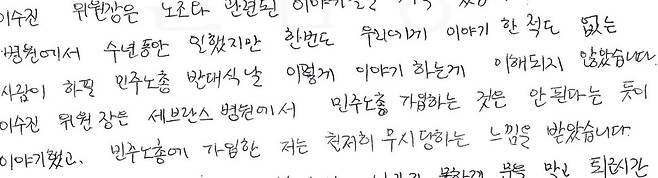 이수진 위원장은 노조와 관련된 이야기를
병원에서 수년동안 일했지만 한번도 우리에게 이야기 한 적도 없는
사람이 하필 민주노총 발대식날 이렇게 이야기 하는게 이해되지 않았습니다.
이수진 위원장은 세브란스 병원에서 민주노총 가입하는 것은 안된다는 듯이
이야기했고, 민주노총에 가입한 저는 철저히 무시당하는 느낌을 받았습니다.
문을 막고 퇴근시간